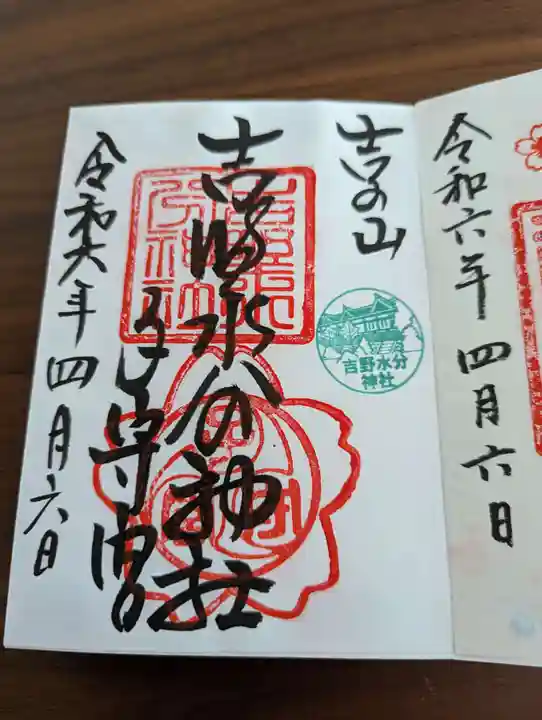 令和六年四月六日
吉の山
吉野水分神社
子守宮
令和六年四月六日
吉野水分
神社